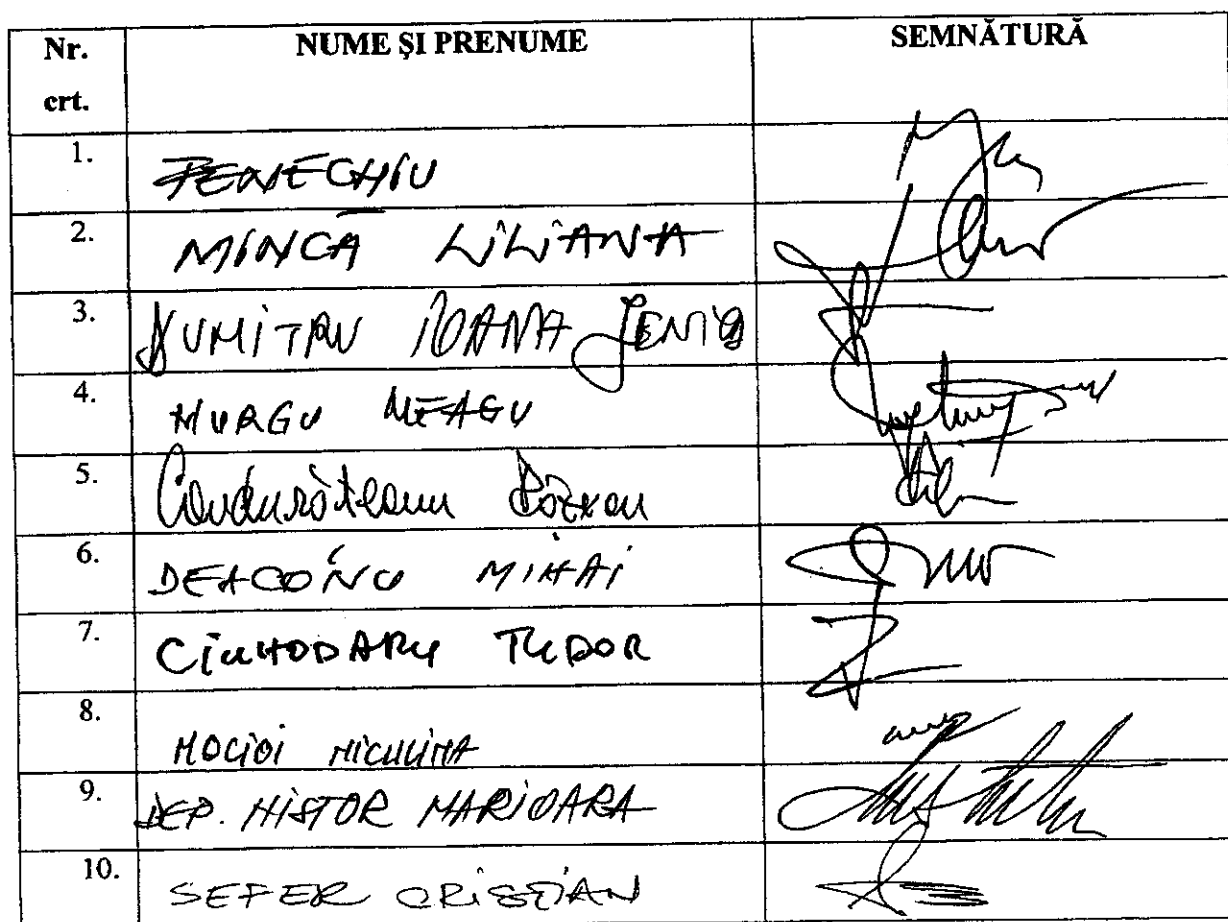 Nr. crt. NUME ȘI PRENUME SEMNĂTURĂ
1. PENECHIU
2. MINCĂ LILIANA
3. DUMITRU IOANA JENICA
4. MURGU NEAGU
5. Condurățeanu Răzvan
6. DEACONU MIHAI
7. CIUHODARU TUDOR
8. MOCIOI NICULINA
9. DEP. NISTOR MARIOARA
10. SEFER CRISTIAN